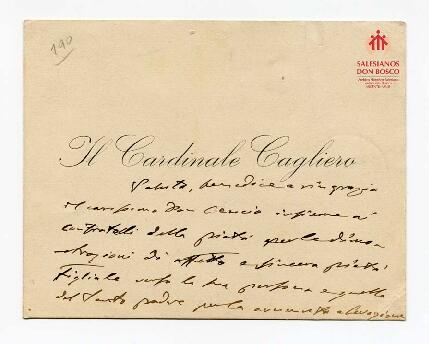 190
SALESIANOS
DON BOSCO
Il Cardinale Cagliero
Saluta, benedice e ringrazia
il carissimo Don insieme a'
confratelli della pietà per le dimo
strazioni di affetto e sincera pietà
figliale verso la sua persona e quella
del Santo padre per la elevazione